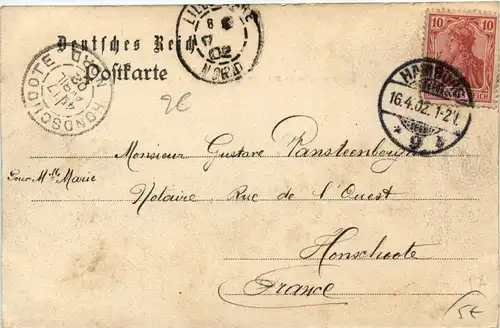 Deutsches Reich
Postkarte
LILLE
8
17
02
NORD
HONDSCHOOTE
NORD
17
AVRIL
02
10 10
HAMBURG
16.4.02. 1-2 N.
* 9 *
2€
Monsieur Gustave Vansteenberghe
Pour Mlle Marie
Notaire, Rue de l'Ouest
Honschoote
France
5€